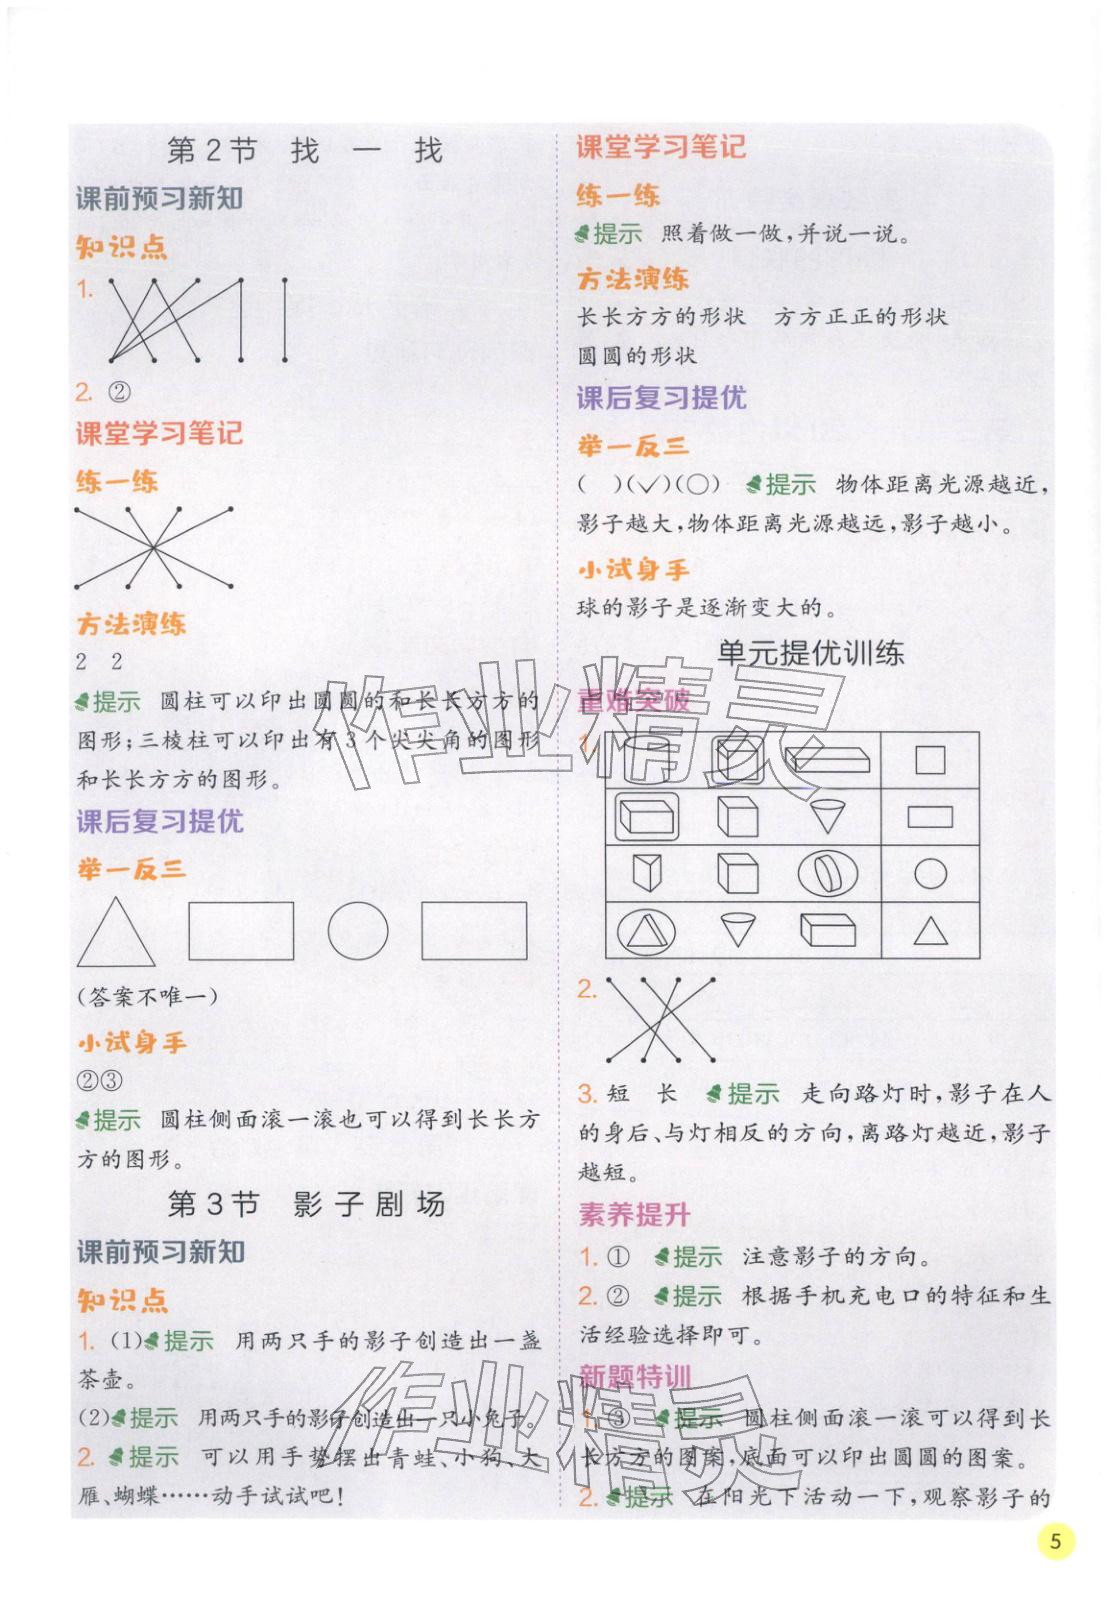 第2节 找 一 找
课前预习新知
知识点
1.
2. ②
课堂学习笔记
练一练
方法演练
2 2
提示 圆柱可以印出圆圆的和长长方方的
图形;三棱柱可以印出有3个尖尖角的图形
和长长方方的图形。
课后复习提优
举一反三
(答案不唯一)
小试身手
②③
提示 圆柱侧面滚一滚也可以得到长长方
方的图形。
第3节 影子剧场
课前预习新知
知识点
1. (1)提示 用两只手的影子创造出一盏
茶壶。
(2)提示 用两只手的影子创造出一只小兔子。
2. 提示 可以用手势摆出青蛙、小狗、大
雁、蝴蝶……动手试试吧!
课堂学习笔记
练一练
提示 照着做一做,并说一说。
方法演练
长长方方的形状 方方正正的形状
圆圆的形状
课后复习提优
举一反三
( )(✓)(○) 提示 物体距离光源越近,
影子越大,物体距离光源越远,影子越小。
小试身手
球的影子是逐渐变大的。
单元提优训练
重难突破
1.
2.
3. 短 长 提示 走向路灯时,影子在人
的身后、与灯相反的方向,离路灯越近,影子
越短。
素养提升
1. ① 提示 注意影子的方向。
2. ② 提示 根据手机充电口的特征和生
活经验选择即可。
新题特训
1. ③ 提示 圆柱侧面滚一滚可以得到长
长方方的图案,底面可以印出圆圆的图案。
2. 提示 在阳光下活动一下,观察影子的
5
作业精灵
作业精灵